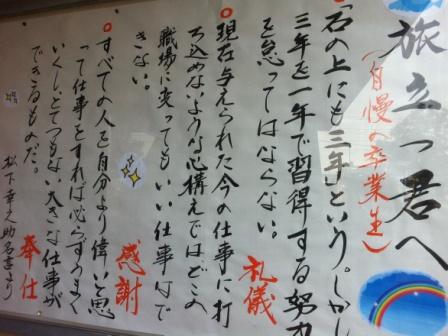 旅立つ君へ
(自慢の卒業生)
「石の上にも三年」という。しかし
三年を一年で習得する努力
を怠ってはならない。
礼儀
現在与えられた今の仕事に打
ち込めないような心構えではどこの
職場に変ってもいい仕事はで
きない。
感謝
すべての人を自分より偉いと思
って仕事をすれば必らずうまく
いくし、とてつもない大きな仕事が
できるものだ。
奉仕
松下幸之助名言より